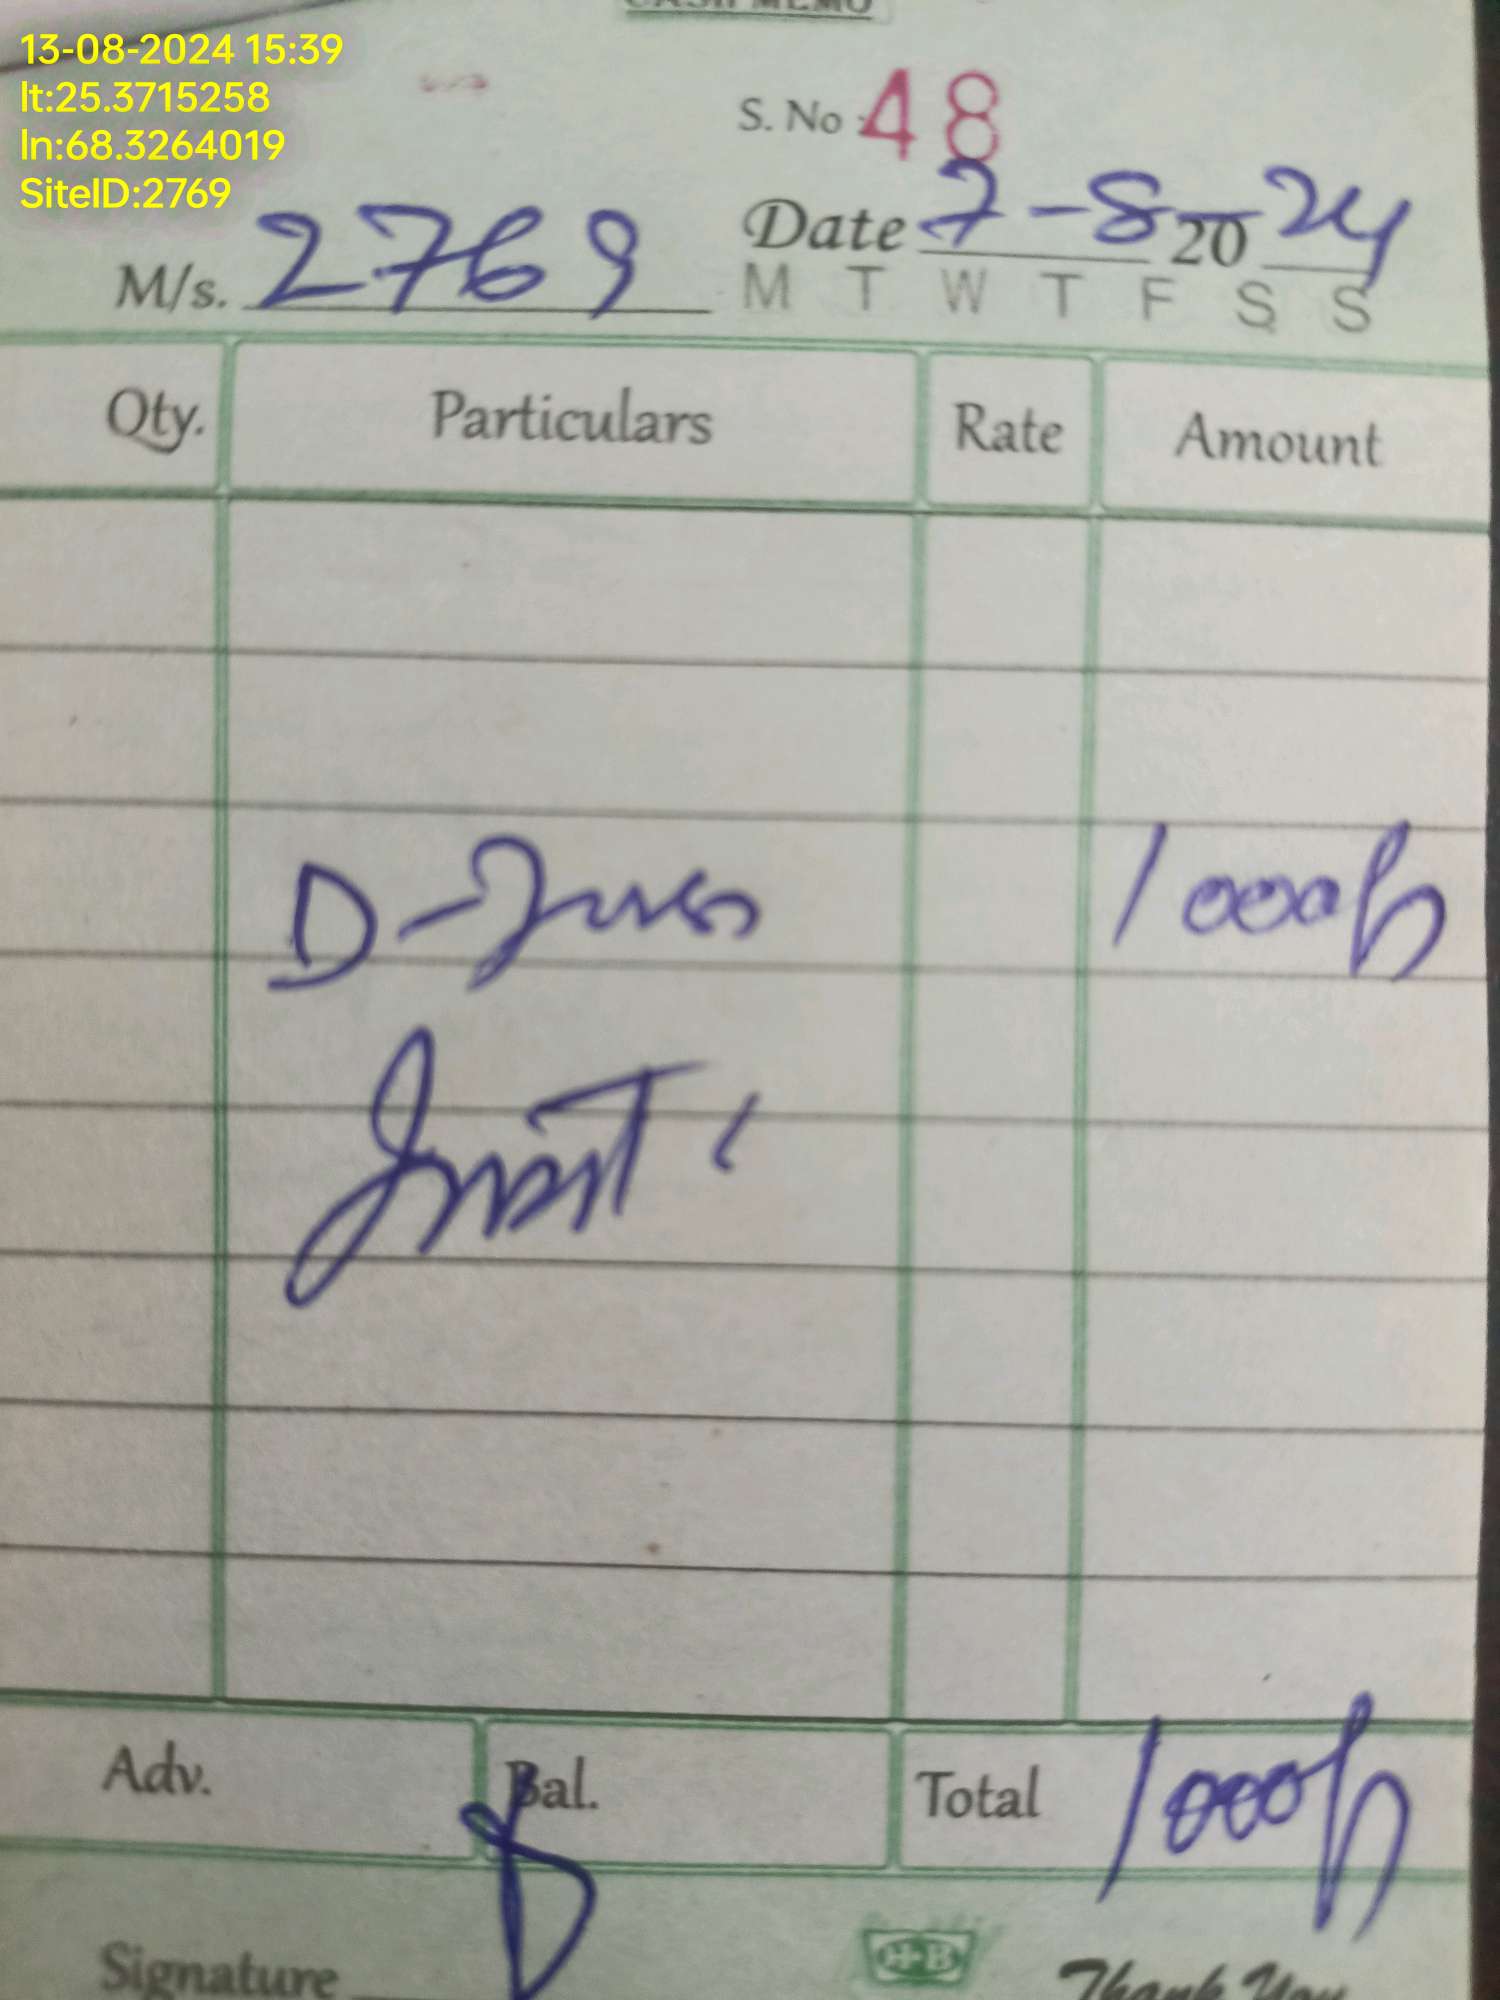 CASH MEMO
13-08-2024 15:39
lt:25.3715258
ln:68.3264019
SiteID:2769
S. No 48
Date 7-8-2024
M/s. 2769
M T W T F S S
Qty. Particulars Rate Amount
D- 1000/-
Adv. Bal. Total 1000/-
Signature
H-B
Thank You